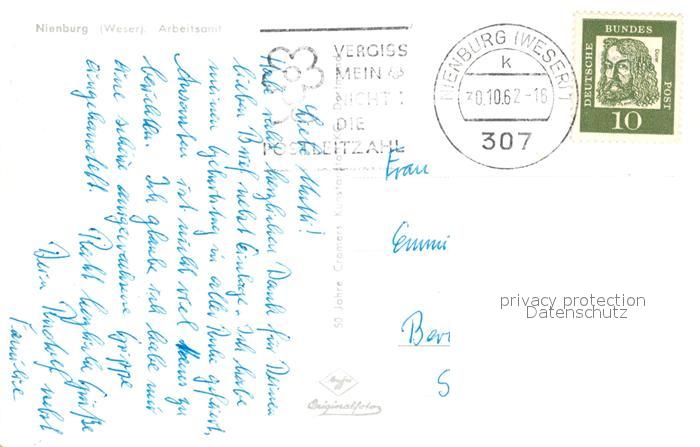 Nienburg (Weser), Arbeitsamt
VERGISS
MEIN
NICHT!
DIE
POSTLEITZAHL
NIENBURG (WESER) 1
k
30.10.62-16
307
DEUTSCHE BUNDES POST
10
Liebe Mutti!
Hab recht herzlichen Dank für Deinen
lieben Brief nebst Einlage. Ich habe
meinen Geburtstag in aller Ruhe gefeiert,
Ansonsten ist nicht viel Neues zu
berichten. Ich glaube ich habe mir
eine schöne ausgewachsene Grippe
eingehandelt. Recht herzliche Grüße
Dein Rudolf nebst
Familie
Frau
Emmi
Ber
S
50 Jahre Cramers Kunstanstalt
Agfa
Originalfoto
privacy protection
Datenschutz